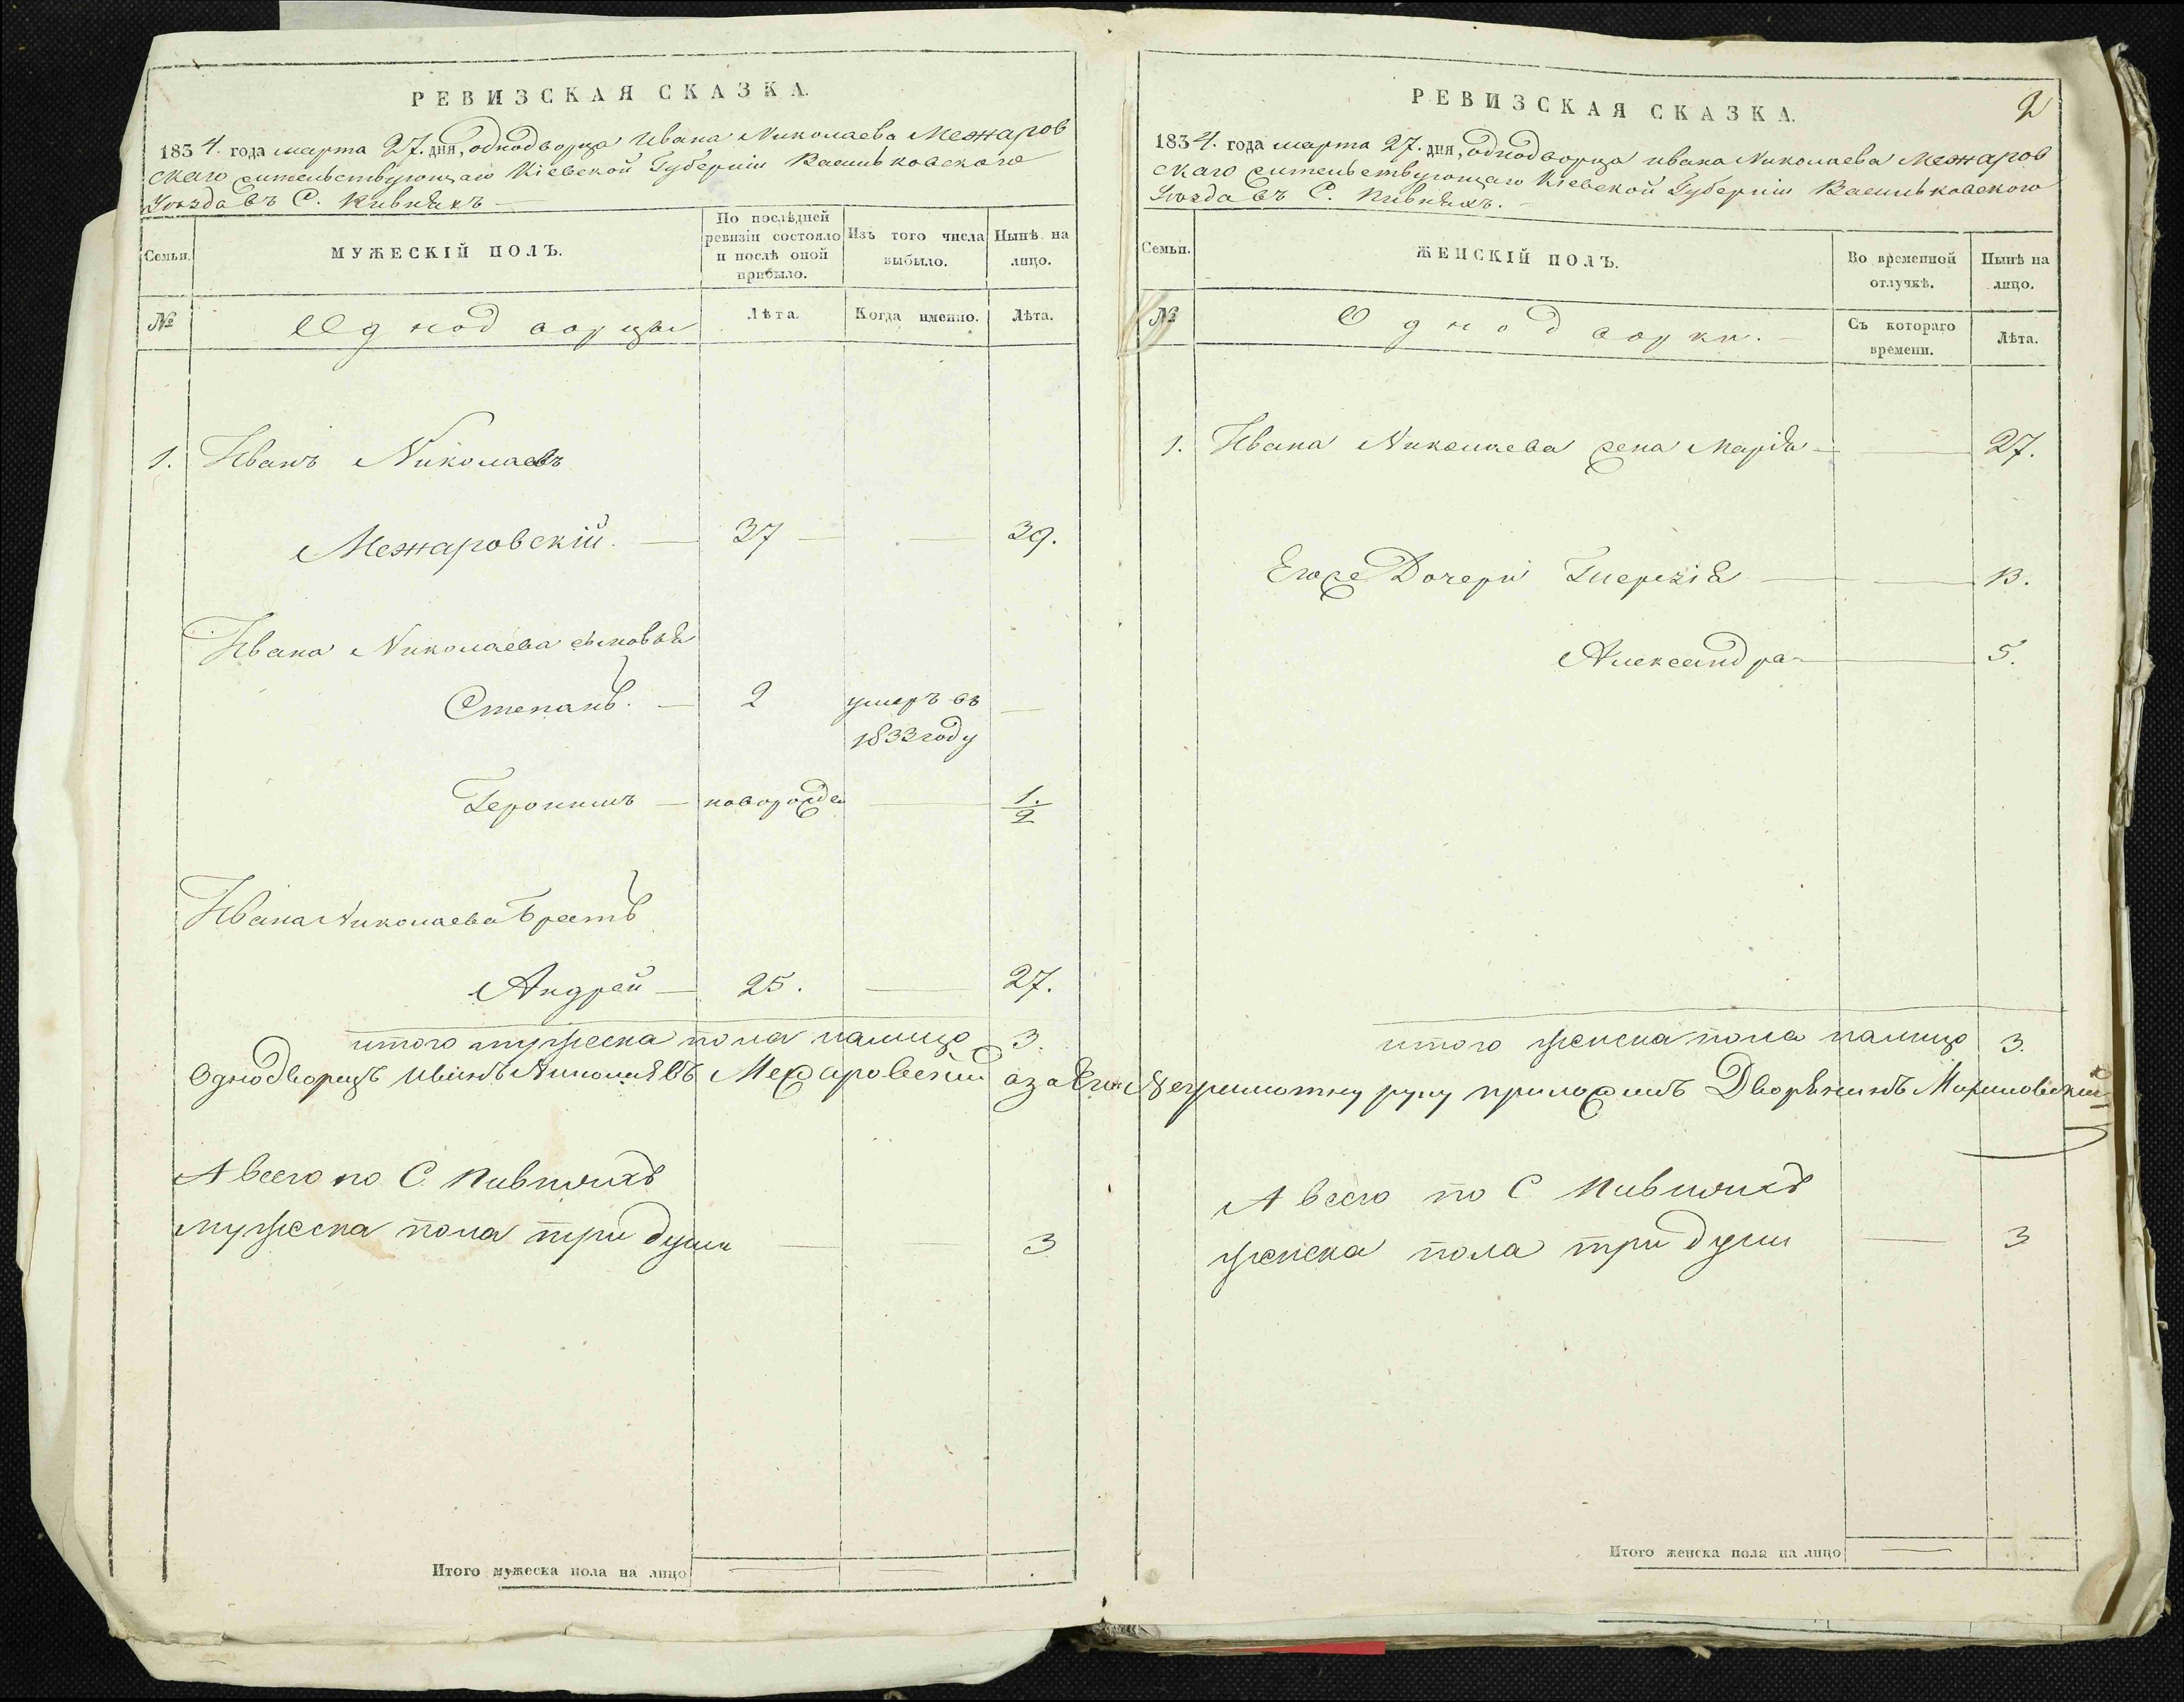 РЕВИЗСКАЯ СКАЗКА.
1834. года марта 27. дня, однодворца Ивана Николаева Межаров
скаго жительствующаго Кіевской Губерніи Васильковскаго
Уѣзда въ С. Пивняхъ
Семьи.
МУЖЕСКІЙ ПОЛЪ.
По послѣдней
ревизіи состояло
и послѣ оной
прибыло.
Изъ того числа
выбыло.
Нынѣ на
лицо.
№
Однодворцы
Лѣта.
Когда именно.
Лѣта.
1. Иванъ Николаевъ
Межаровскій. 37 39.
Ивана Николаева сыновья
Степанъ. 2 умеръ въ
1833 году
Геронимъ новорожден 1/2
Ивана Николаева Братъ
Андрей 25. 27.
итого мужеска пола налицо 3.
Однодворецъ Иванъ Николаевъ Межаровскій а за его неграмотну руку приложилъ Дворянинъ
А всего по С. Пивняхъ
мужеска пола три души 3
Итого мужеска пола на лицо
РЕВИЗСКАЯ СКАЗКА.
2
1834. года марта 27. дня, однодворца Ивана Николаева Межаров
скаго жительствующаго Кіевской Губерніи Васильковскаго
Уѣзда въ С. Пивняхъ.
Семьи.
ЖЕНСКІЙ ПОЛЪ.
Во временной
отлучкѣ.
Нынѣ на
лицо.
№
Однодворки.
Съ котораго
времени.
Лѣта.
1. Ивана Николаева жена Марія 27.
Егоже Дочери Терезія 13.
Александра 5.
итого женска пола налицо 3.
А всего по С. Пивняхъ
женска пола три души 3
Итого женска пола на лицо